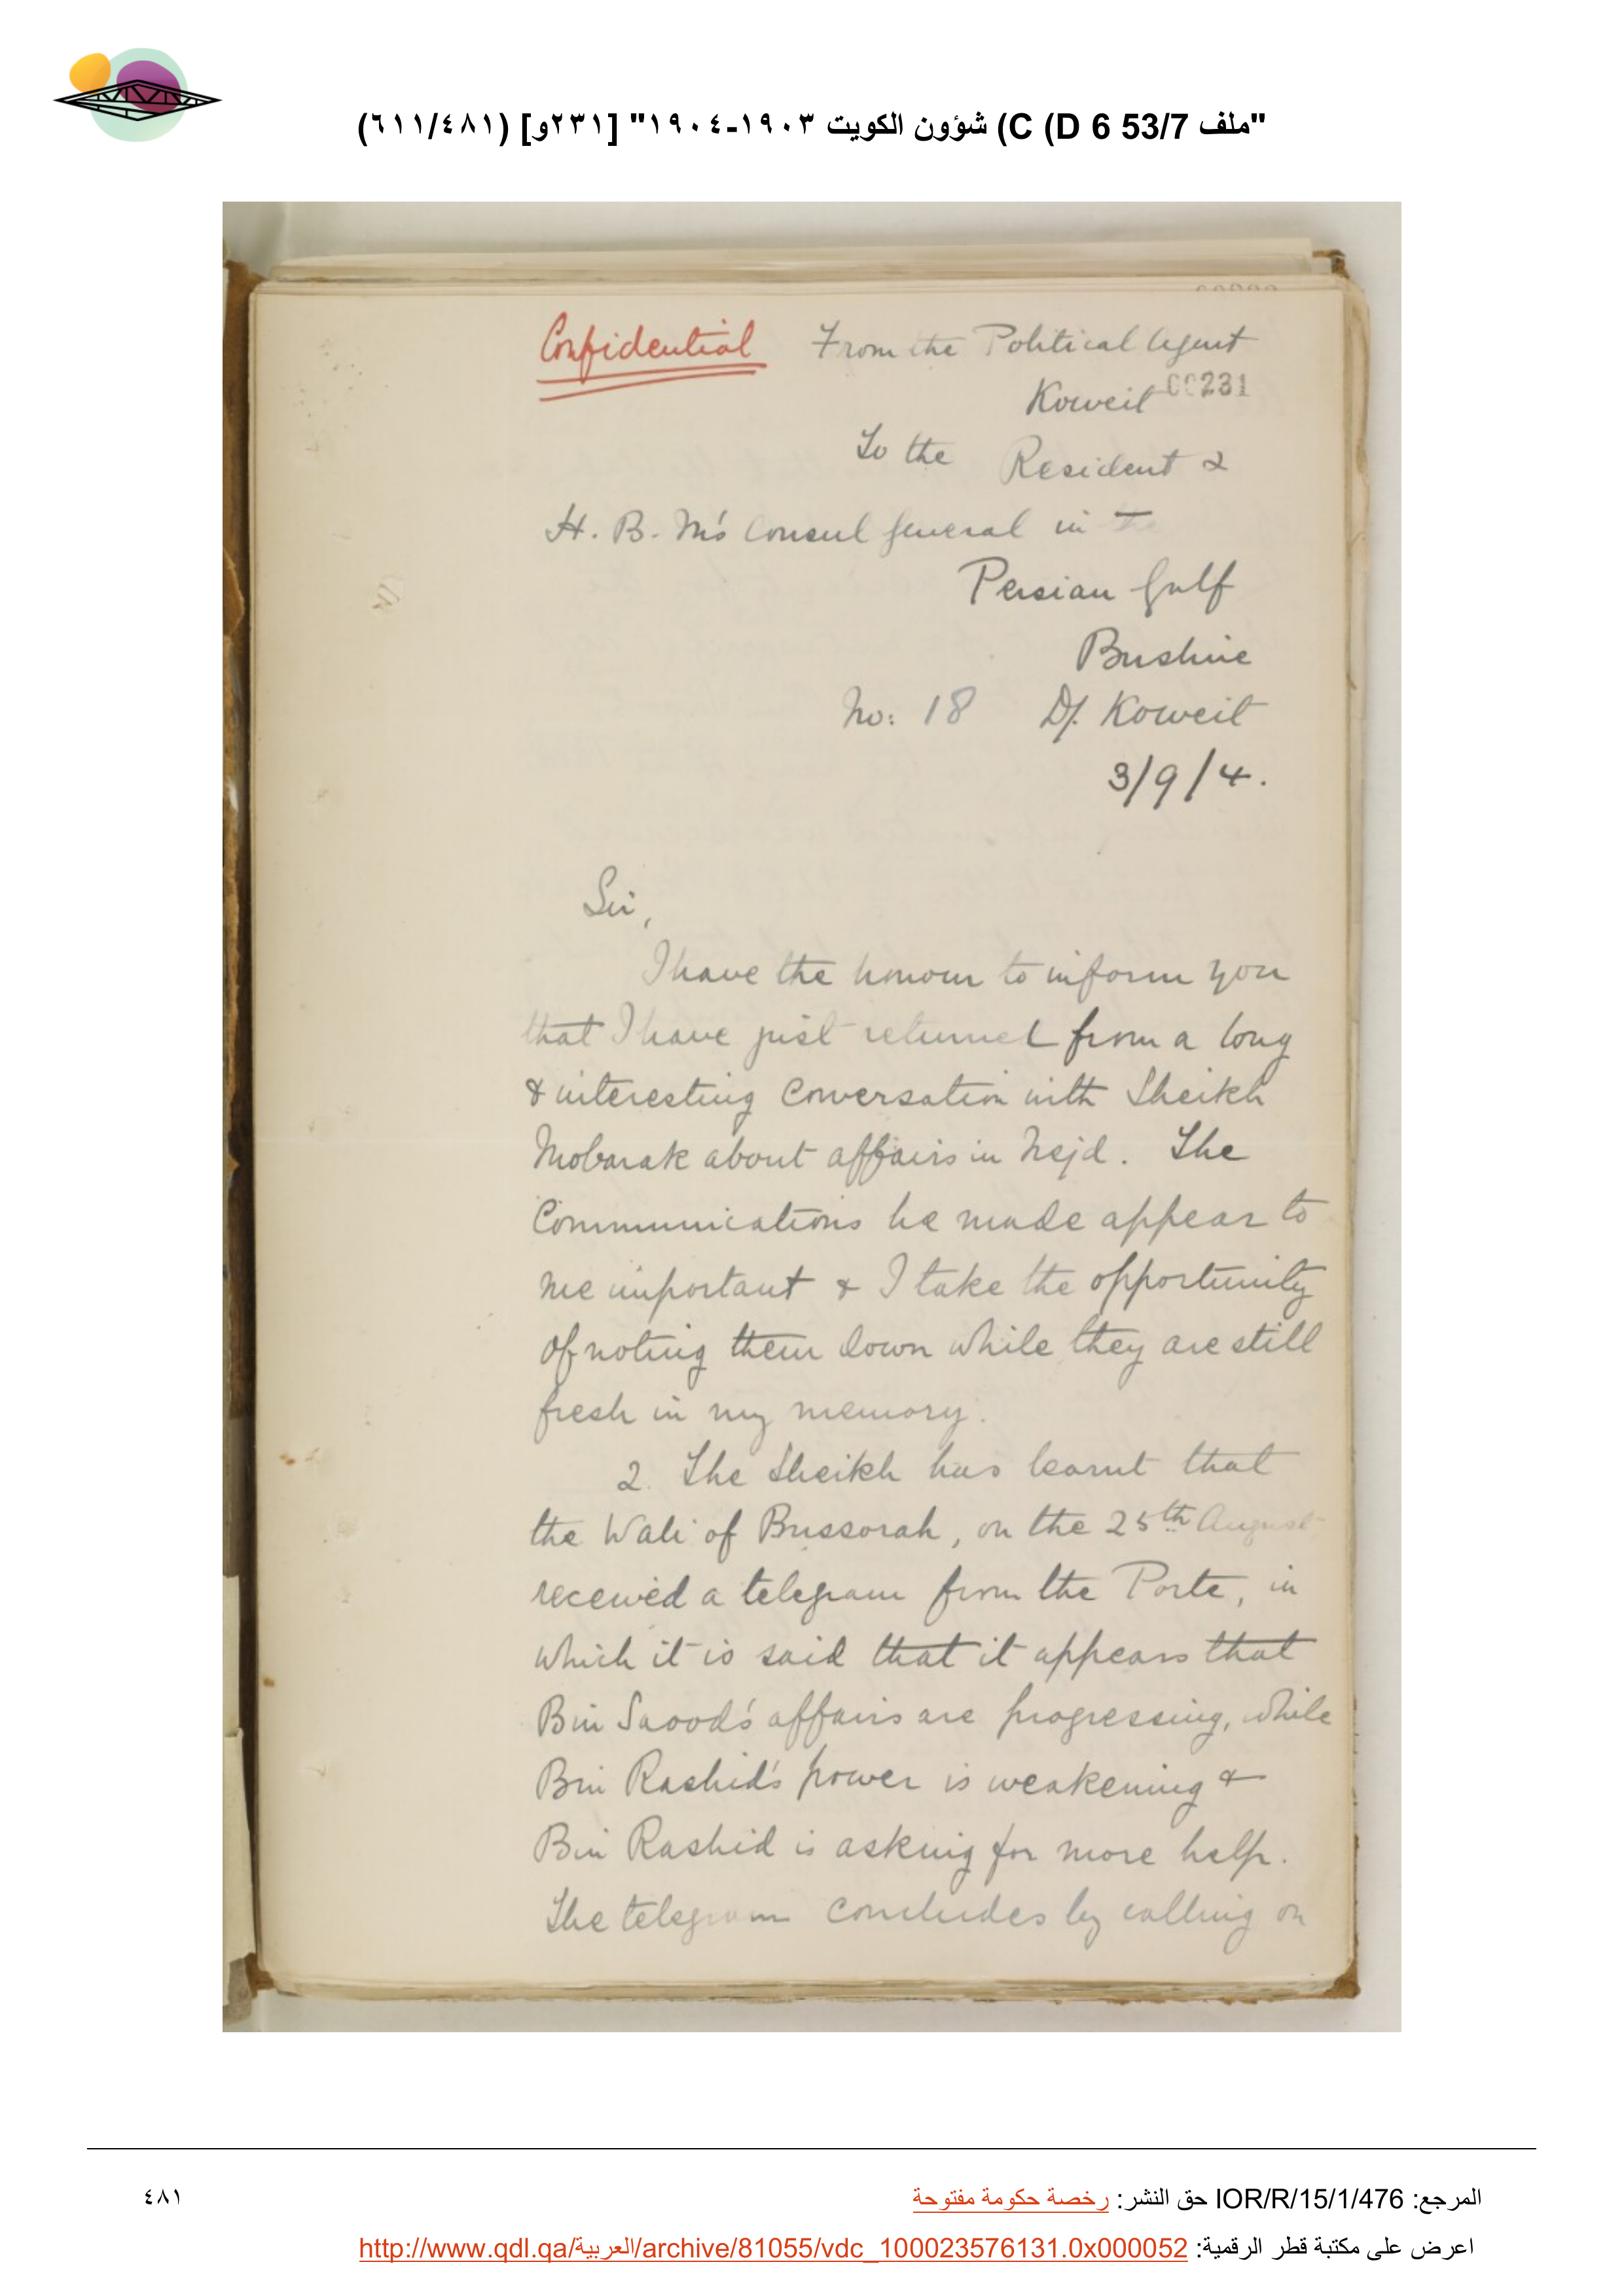 "ملف 53/7 C (D 6) شؤون الكويت ١٩٠٣-١٩٠٤" [٢٣١و] (٦١١/٤٨١)
Confidential From the Political Agent
Koweit 00231
To the Resident &
H. B. M's Consul General in
Persian Gulf
Bushire
No: 18 D/. Koweit
3/9/4.
Sir,
I have the honour to inform you
that I have just returned from a long
& interesting conversation with Sheikh
Mobarak about affairs in Nejd. The
Communications he made appear to
me important & I take the opportunity
of noting them down while they are still
fresh in my memory.
2. The Sheikh has learnt that
the Wali of Bussorah, on the 25th August
received a telegram from the Porte, in
which it is said that it appears that
Bin Saood's affairs are progressing, while
Bin Rashid's power is weakening &
Bin Rashid is asking for more help.
The telegram concludes by calling on
المرجع: IOR/R/15/1/476 حق النشر: رخصة حكومة مفتوحة
٤٨١
اعرض على مكتبة قطر الرقمية: http://www.qdl.qa/العربية/archive/81055/vdc_100023576131.0x000052